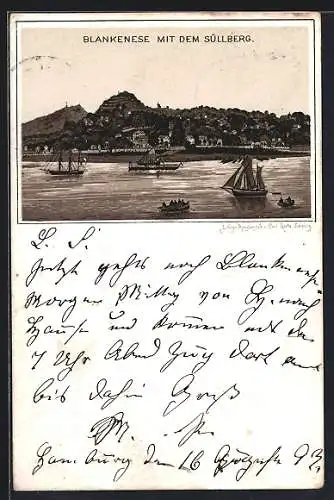 BLANKENESE MIT DEM SÜLLBERG.
L. S.
Jetzt gehts nach Blankenese
Morgen Mittag von H. nach
Hause und kommen mit dem
7 Uhr Abend Zug dort an
bis dahin Gruß
Hamburg den 16 93.